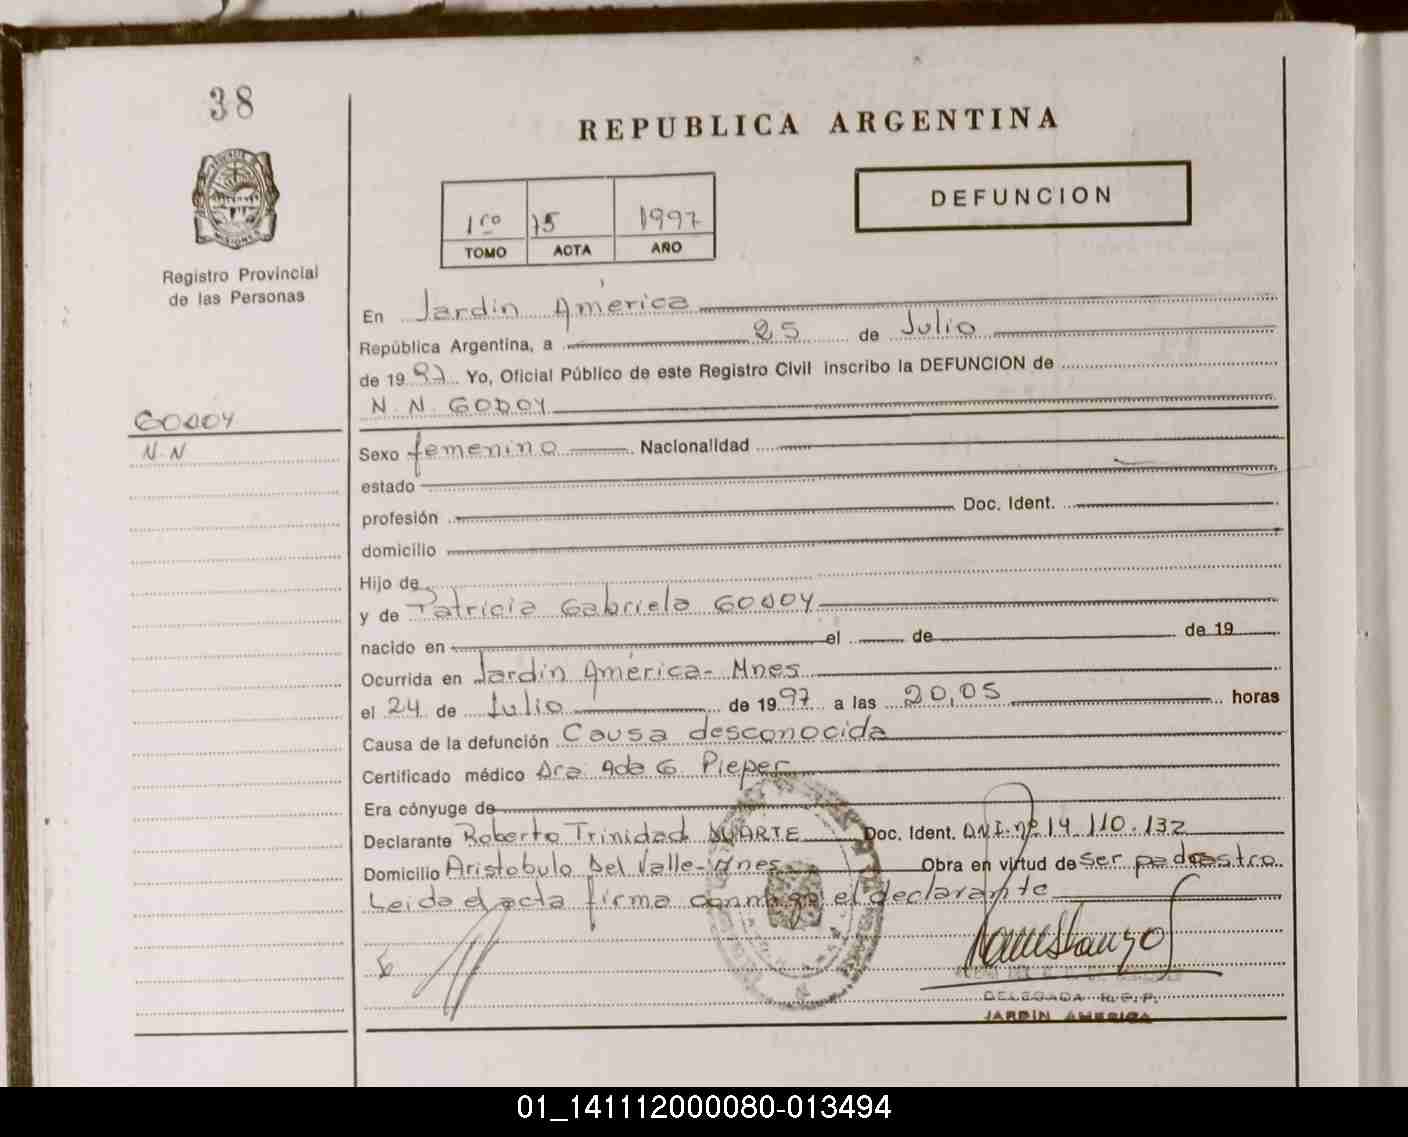 38
REPUBLICA ARGENTINA
DEFUNCION
1ro 75 1997
TOMO ACTA AÑO
Registro Provincial
de las Personas
En Jardin América
República Argentina, a 25 de Julio
de 1997 Yo, Oficial Público de este Registro Civil inscribo la DEFUNCION de
N.N. GODOY
GODOY
N.N
Sexo femenino Nacionalidad
estado
profesión Doc. Ident.
domicilio
Hijo de
y de Patricia Gabriela GODOY
nacido en el de de 19
Ocurrida en Jardin América - Mnes
el 24 de Julio de 1997 a las 20,05 horas
Causa de la defunción Causa desconocida
Certificado médico Dra Ada G. Pieper
Era cónyuge de
Declarante Roberto Trinidad DUARTE Doc. Ident. DNI. nº 14.110.132
Domicilio Aristobulo Del Valle - Mnes Obra en virtud de ser padrastro.
Leida el acta firma conmigo el declarante
DELEGADA R.P.P.
JARDIN AMERICA
01_141112000080-013494